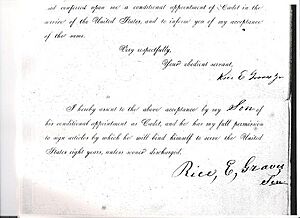 me conferred upon me a conditional appointment of Cadet in the
service of the United States, and to inform you of my acceptance
of the same.
Very respectfully,
Your obedient servant,
Rice E Graves Jr
I hereby assent to the above acceptance by my Son of
his conditional appointment as Cadet, and he has my full permission
to sign articles by which he will bind himself to serve the United
States eight years, unless sooner discharged.
Rice, E, Graves
Sen